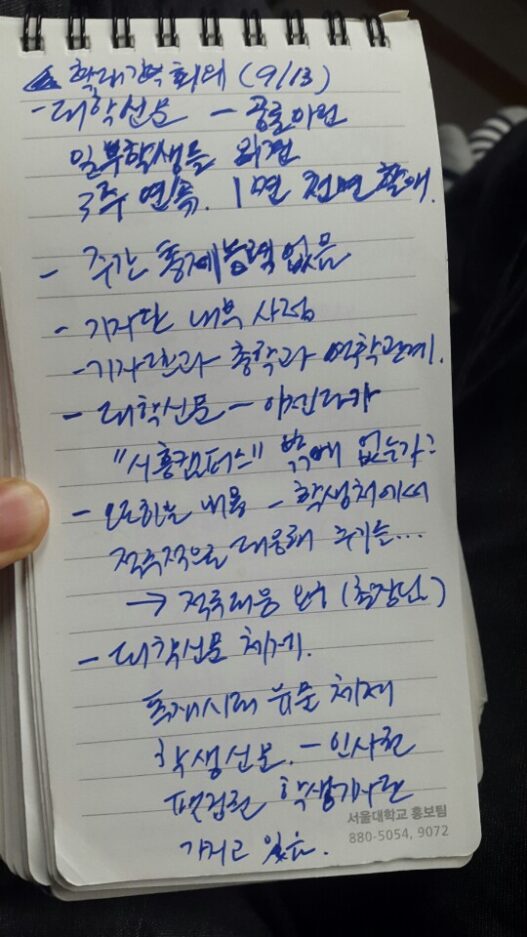 학대간 회의 (9/13)
- 대학신문 - 공론이란
일부학생들 의견
3주 연속. 1면 전면 할애.
- 주간 통제능력 없음
- 기자단 내부 사정
- 기자단과 총학과 연학관계.
- 대학신문 - 아젠다가
"시흥캠퍼스" 밖에 없는가?
- 내용 - 학생처에서
적극적으로 대응해 주기를...
→ 적극대응 (총장님)
- 대학신문 체제.
독재시대 신문 체제
학생신문. - 인사권
편집권 학생기자단
가지고 있음.
서울대학교 홍보팀
880-5054, 9072